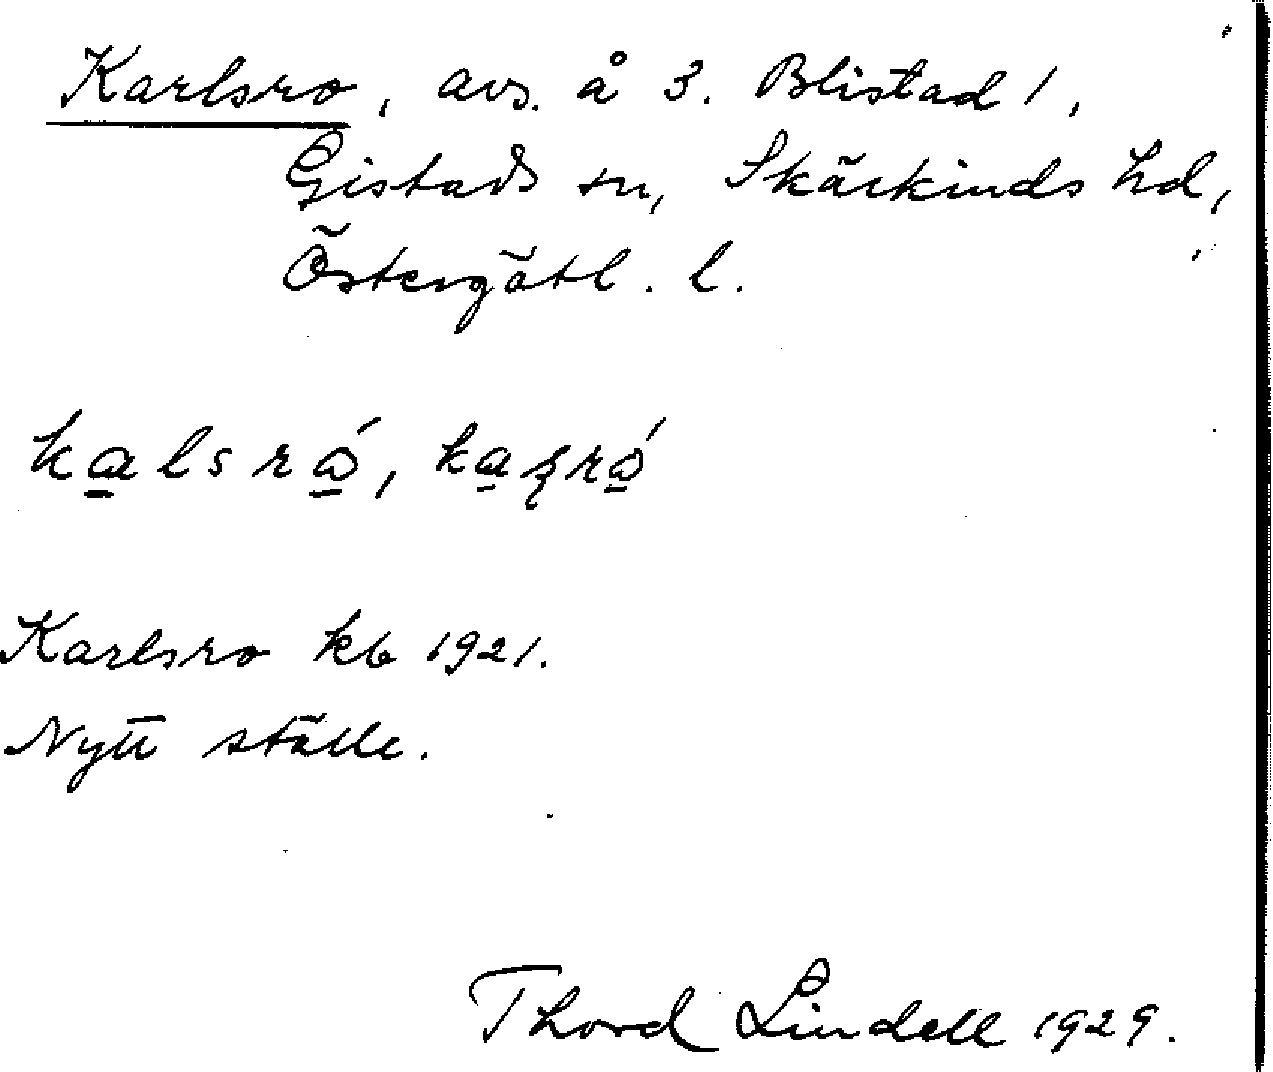 Karlsro, avs. å 3. Blistad 1,
Gistads sn, Skärkinds hd,
Östergötl. l.
kalsró,
Karlsro kb 1921.
Nytt ställe.
Thord Lindell 1929.